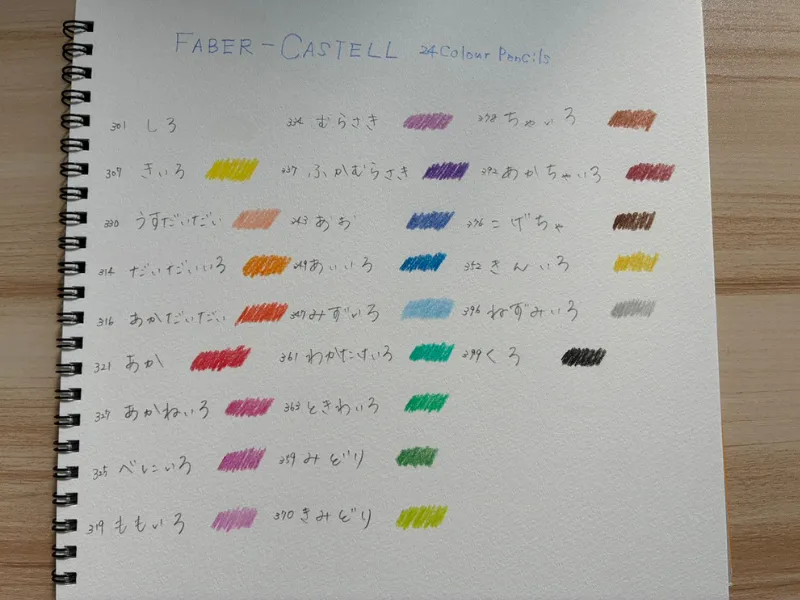 FABER-CASTELL 24 Colour Pencils
301 しろ
307 きいろ
330 うすだいだい
314 だいだいいろ
316 あかだいだい
321 あか
327 あかねいろ
325 べにいろ
319 ももいろ
334 むらさき
337 ふかむらさき
343 あお
349 あいいろ
347 みずいろ
361 わかたけいろ
363 ときわいろ
359 みどり
370 きみどり
378 ちゃいろ
392 あかちゃいろ
376 こげちゃ
352 きんいろ
396 ねずみいろ
399 くろ